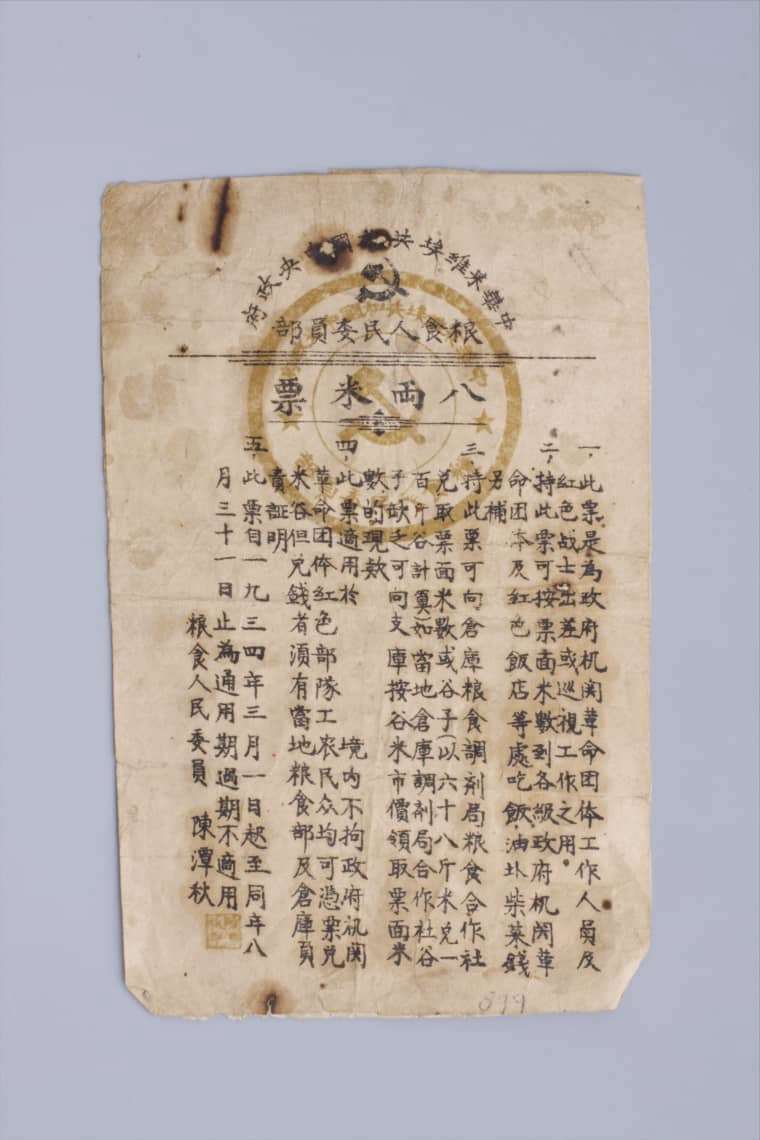 中華米維埃共和國中央政府
粮食人民委員部
八両米票
一，此票是為政府机関革命团体工作人員及
紅色战士出差或巡視工作之用。
二，持此票可按票面米数到各級政府机関革
命团体及紅色飯店等處吃飯，油圤柴菜錢
另補
三，持此票可向倉庫粮食調剂局粮食合作社
兑取票面米數或谷子（以六十八斤米兑一
百斤谷計算）如當地倉庫調剂局合作社谷
子缺乏可向支庫按谷米市價領取票面米
數的現款
四，此票適用於　　境内不拘政府机関
革命团体紅色部隊工农民众均可憑票兑
米谷但兑錢者須有當地粮食部及倉庫負
責証明
五，此票自一九三四年三月一日起至同年八
月三十一日止為通用期過期不適用
粮食人民委員　陳潭秋
899